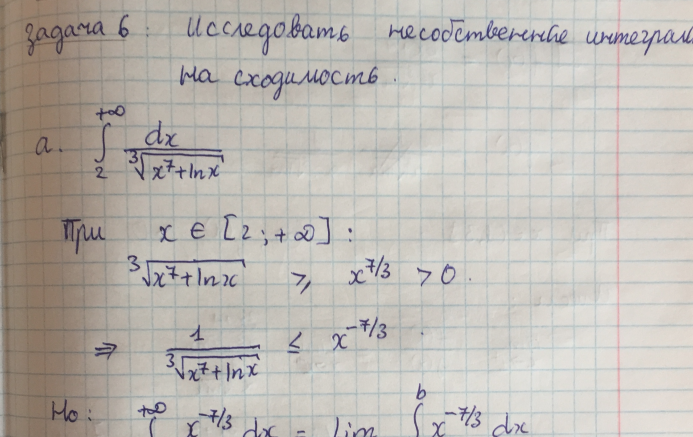 Задача 6: Исследовать несобственные интегралы
на сходимость.
a. ∫₂^{+∞} dx / ∛(x⁷+ln x)
При x ∈ [2; +∞]:
∛(x⁷+ln x) ⩾ x^{7/3} > 0.
⇒ 1 / ∛(x⁷+ln x) ≤ x^{-7/3}.
Но: ∫^{+∞} x^{-7/3} dx = lim ∫^b x^{-7/3} dx